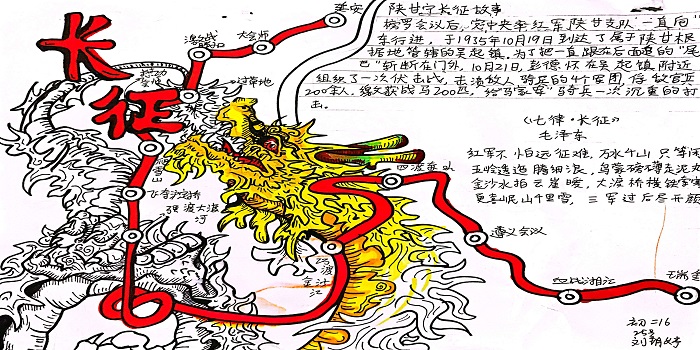 长征
延安
陕甘宁长征故事
俄罗会议后,党中央率红军陕甘支队一直向
东行进,于1935年10月19日到达了属于陕甘根
据地管辖的吴起镇,为了把一直跟在后面追的“尾
巴”斩断在门外,10月21日,彭德怀在吴起镇附近
组织了一次伏击战,击溃敌人骑兵的4个军团,俘敌官
200余人,缴获战马200匹,给马家军骑兵一次沉重的打
击。
大会师
过草地
爬雪山
飞夺泸定桥
强渡大渡
河
巧渡
金沙江
四渡赤水
遵义会议
血战湘江
《七律·长征》
毛泽东
红军不怕远征难,万水千山只等闲
五岭逶迤腾细浪,乌蒙磅礴走泥丸
金沙水拍云崖暖,大渡桥横铁索寒
更喜岷山千里雪,三军过后尽开颜
初二16
25号